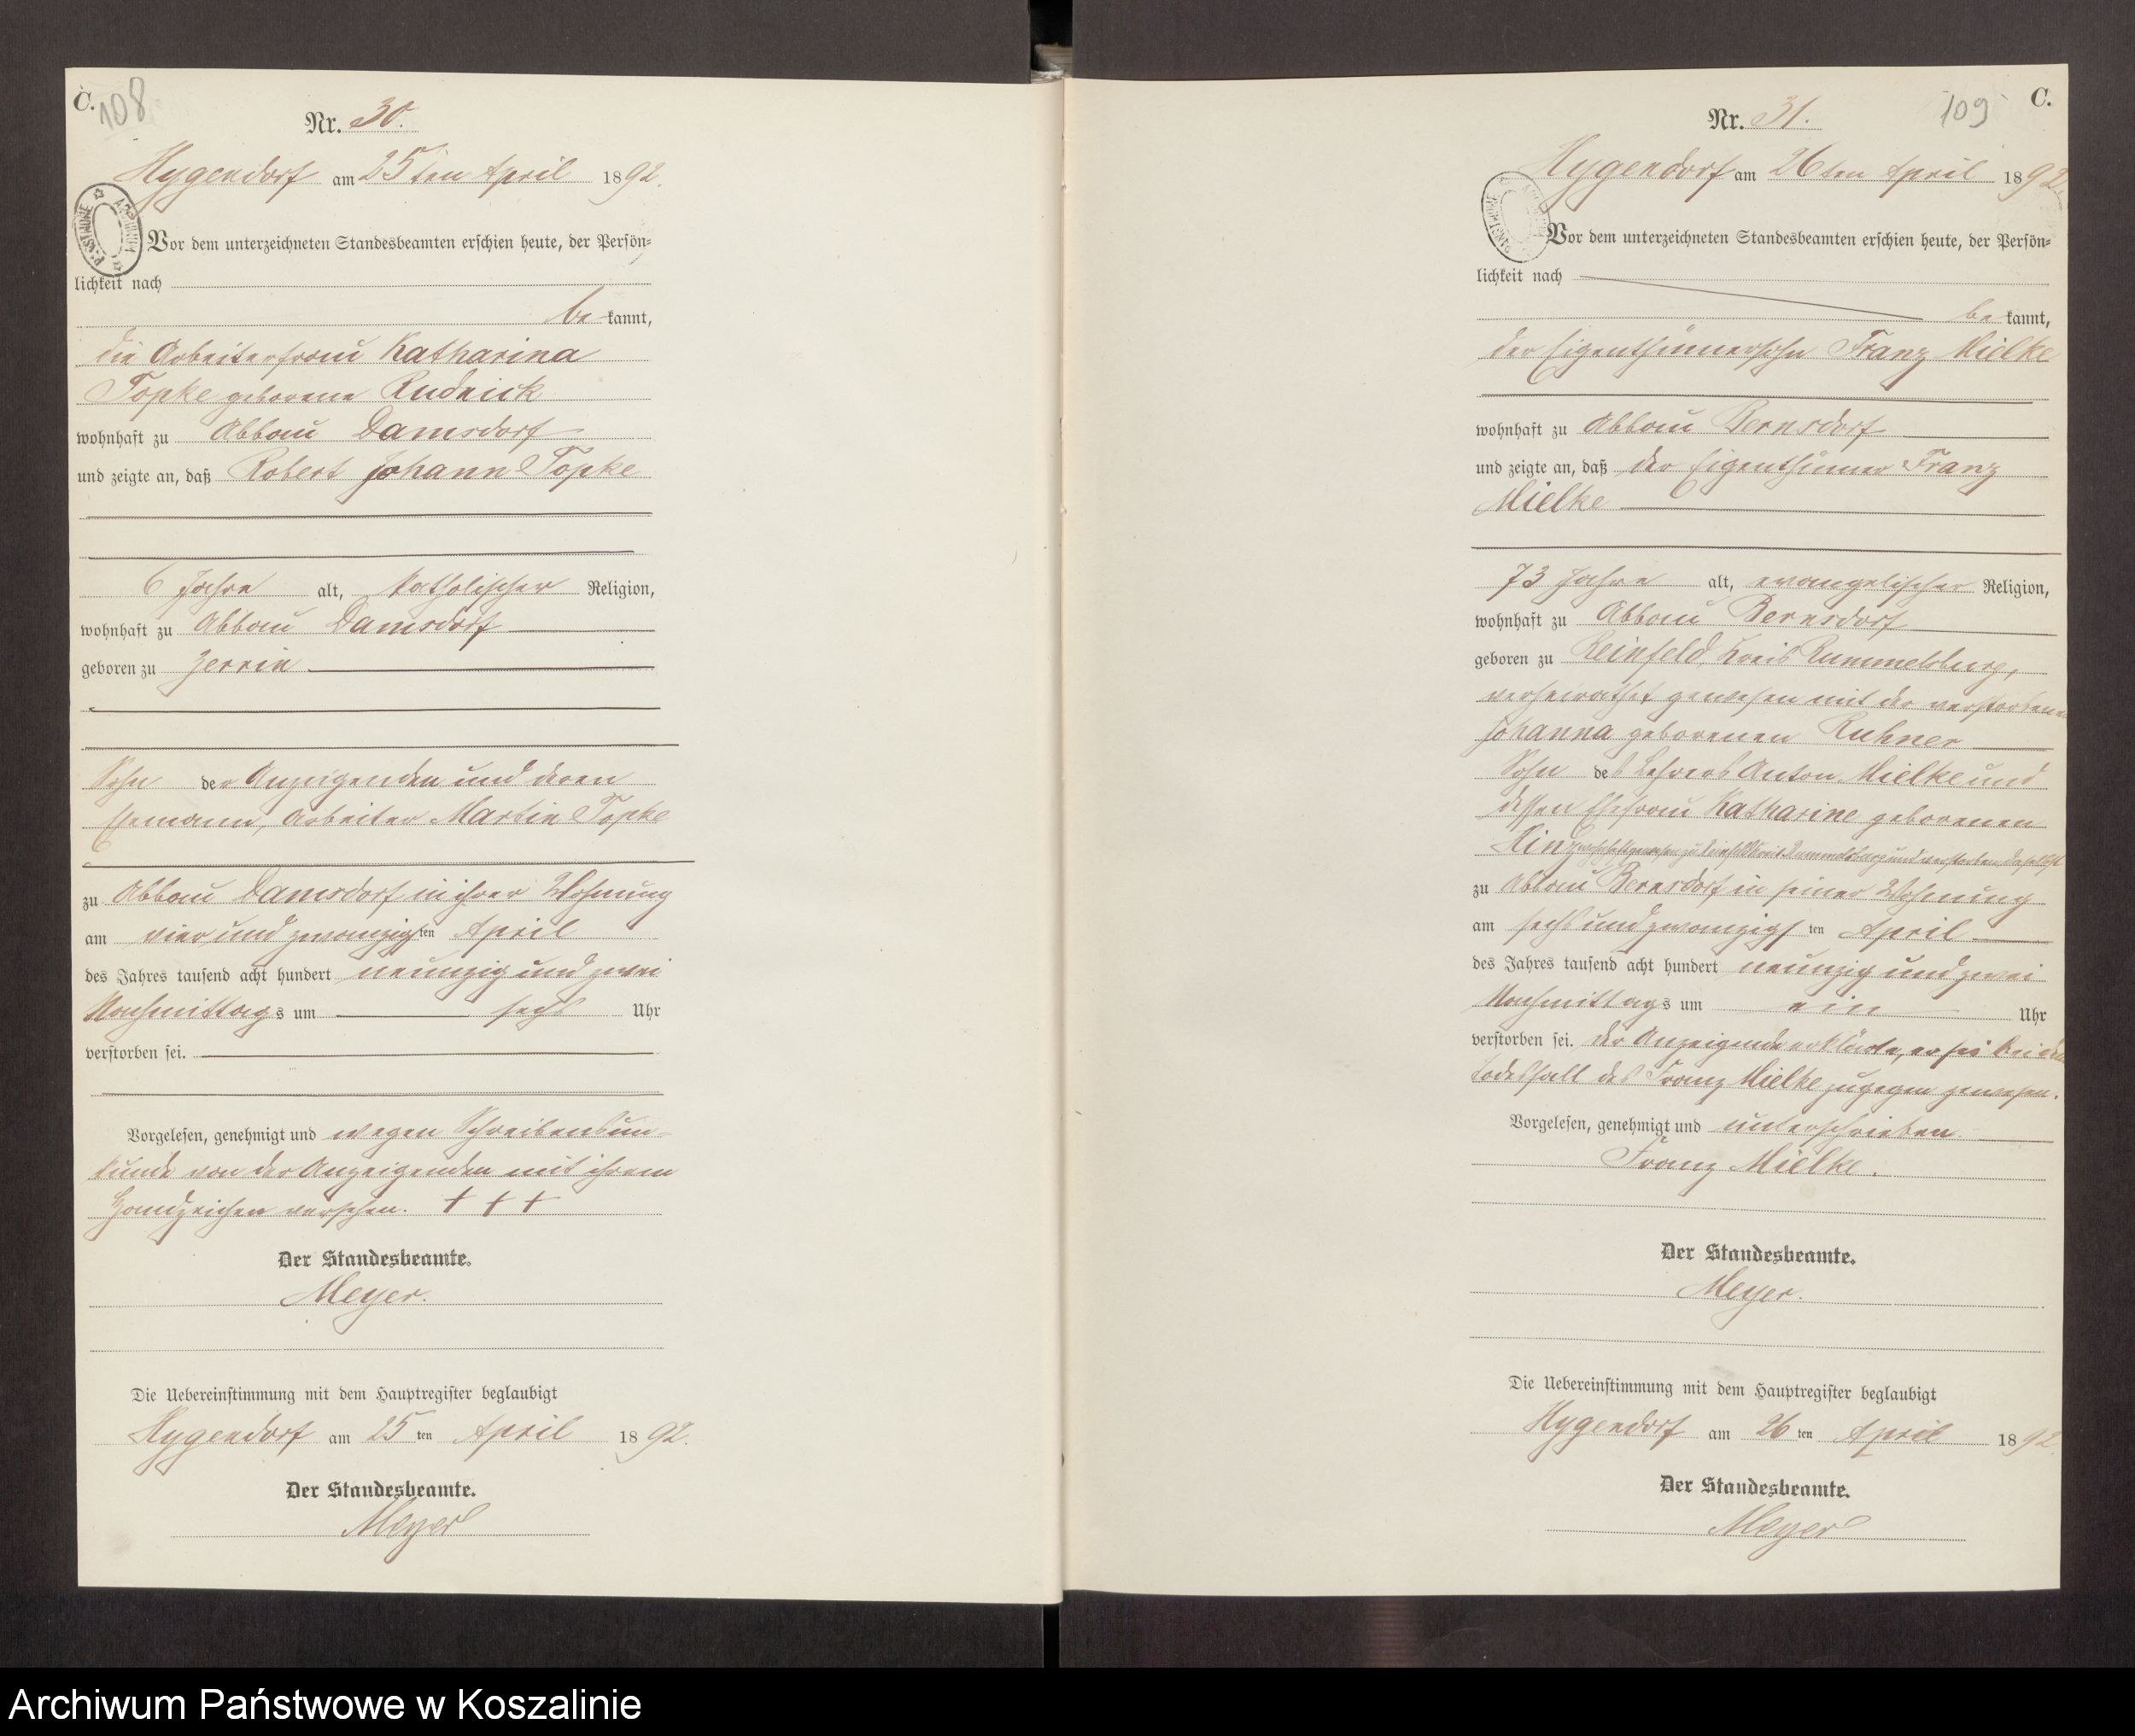 C.
108
Nr. 30.
Hygendorf am 25ten April 1892.
ARCHIWUM PAŃSTWOWE
Vor dem unterzeichneten Standesbeamten erschien heute, der Persön-
lichkeit nach
be kannt,
die Arbeiterfrau Katharina
Topke geborene Rudnick
wohnhaft zu Abbau Damsdorf
und zeigte an, daß Robert Johann Topke
6 Jahre alt, katholischer Religion,
wohnhaft zu Abbau Damsdorf
geboren zu Zerrin
Sohn der Anzeigenden und deren
Ehemann, Arbeiter Martin Topke
zu Abbau Damsdorf in ihrer Wohnung
am vier und zwanzigsten April
des Jahres tausend acht hundert neunzig und zwei
Nachmittags um sechs Uhr
verstorben sei.
Vorgelesen, genehmigt und wegen Schreibensun-
kunde von der Anzeigenden mit ihrem
Handzeichen versehen. + + +
Der Standesbeamte.
Meyer.
Die Uebereinstimmung mit dem Hauptregister beglaubigt
Hygendorf am 25 ten April 1892.
Der Standesbeamte.
Meyer
C.
109
Nr. 31.
Hygendorf am 26ten April 1892.
Vor dem unterzeichneten Standesbeamten erschien heute, der Persön-
lichkeit nach
be kannt,
der Eigenthümersohn Franz Mielke
wohnhaft zu Abbau Bernsdorf
und zeigte an, daß der Eigenthümer Franz
Mielke
73 Jahre alt, evangelischer Religion,
wohnhaft zu Abbau Bernsdorf
geboren zu Reinfeld, Kreis Rummelsburg,
verheirathet gewesen mit der verstorbenen
Johanna geborenen Ruhner
Sohn des Lehrers Anton Mielke und
dessen Ehefrau Katharine geborenen
Hinz wohnhaft gewesen zu Reinfeld Kreis Rummelsburg und verstorben daselbst
zu Abbau Bernsdorf in seiner Wohnung
am sechs und zwanzigsten April
des Jahres tausend acht hundert neunzig und zwei
Nachmittags um ein Uhr
verstorben sei. der Anzeigende erklärte, er sei bei dem
Todesfall des Franz Mielke zugegen gewesen.
Vorgelesen, genehmigt und unterschrieben
Franz Mielke.
Der Standesbeamte.
Meyer.
Die Uebereinstimmung mit dem Hauptregister beglaubigt
Hygendorf am 26 ten April 1892.
Der Standesbeamte.
Meyer
Archiwum Państwowe w Koszalinie